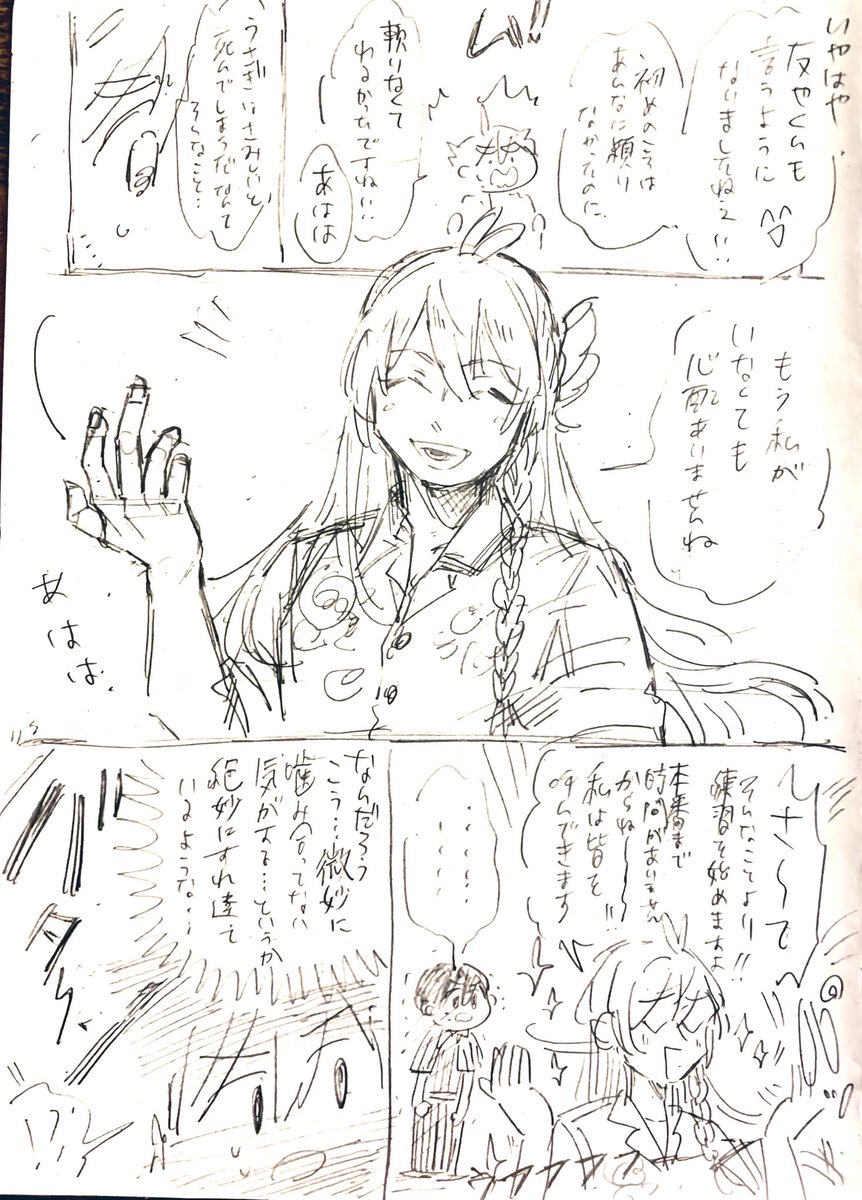 いやはや
友也くんも
言うように
なりましたねえ!!
初めの頃は
あんなに頼り
なかったのに
頼りなくて
わるかったですね!!
あはは
うさぎはさみしいと
死んでしまうだなんて
そんなこと…
もう私が
いなくても
心配ありませんね
あはは
さ〜て
そんなことより!!
練習を始めますよ
本番まで
時間がありません
からね〜〜!!
私は皆を
呼んできます
なんだろう
こう…微妙に
噛み合ってない
気がする…というか
絶妙にすれ違って
いるような…